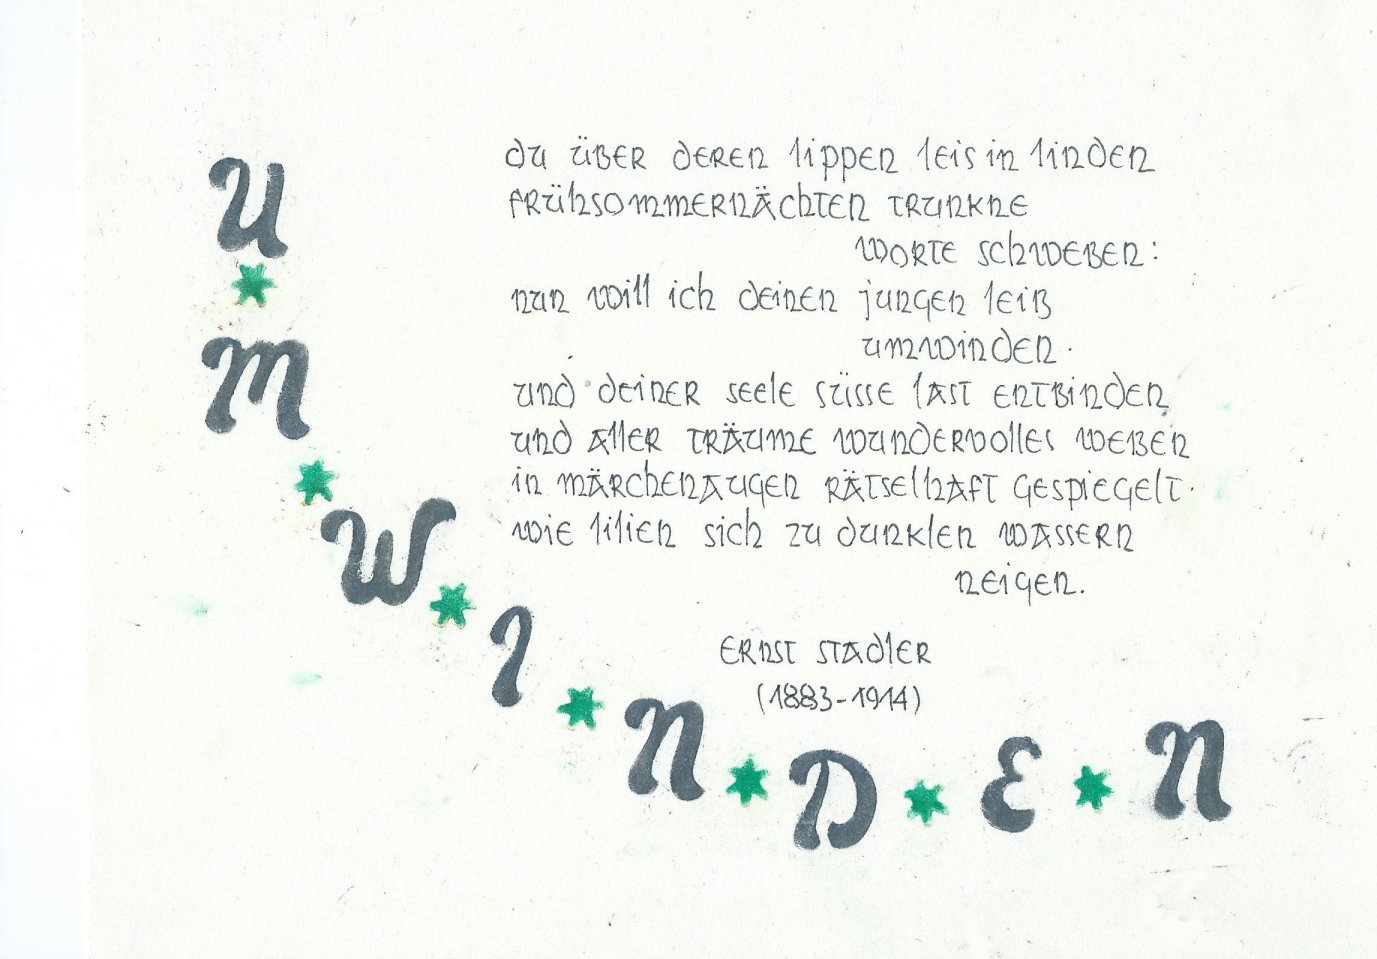 UMWINDEN
du über deren lippen leis in linden
frühsommernächten trunkne
worte schweben:
nun will ich deinen jungen leiß
umwinden.
und deiner seele süsse last entbinden
und aller träume wundervolles weben
in märchenaugen rätselhaft gespiegelt.
wie lilien sich zu dunklen wassern
neigen.
ernst stadler
(1883-1914)